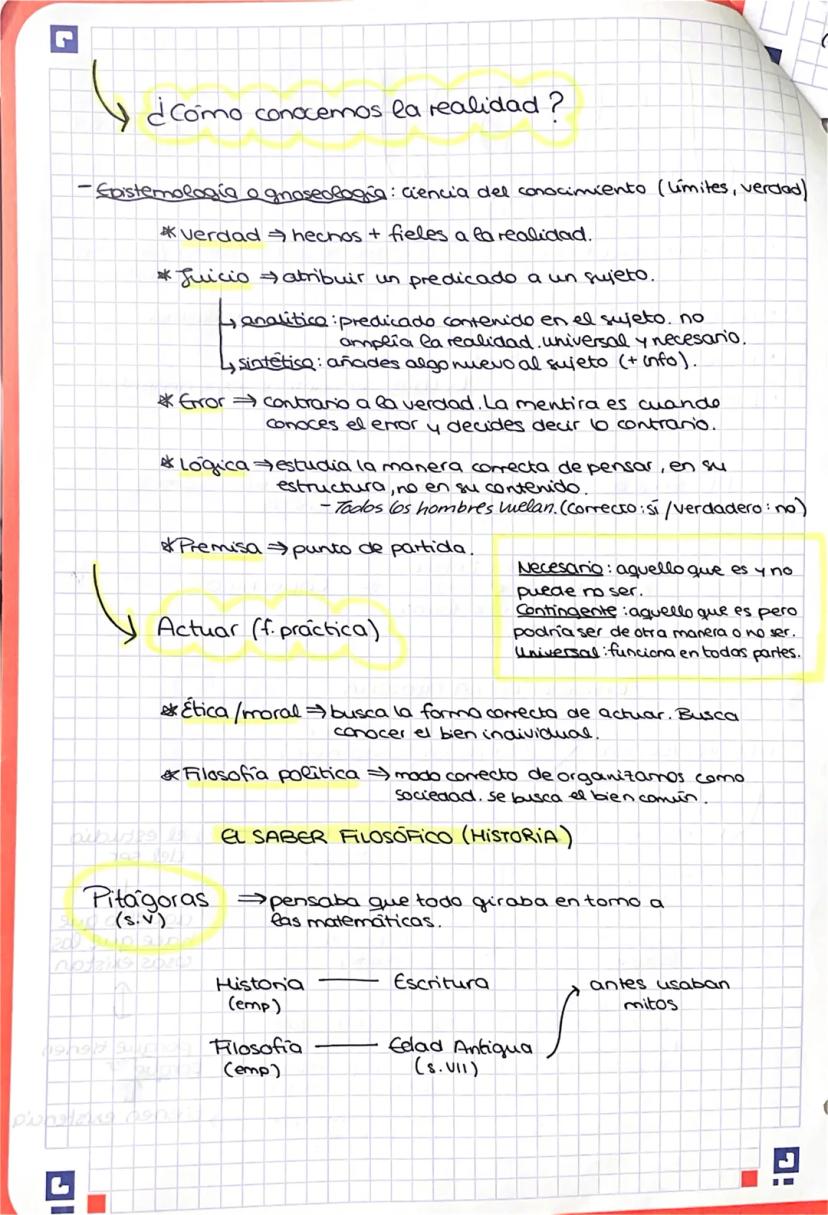 ¿Cómo conocemos la realidad?
- Epistemología o gnoseología: ciencia del conocimiento (límites, verdad)
* Verdad ⇒ hechos + fieles a la realidad.
* Juicio ⇒ atribuir un predicado a un sujeto.
↳ analítico: predicado contenido en el sujeto. no
amplía la realidad. universal y necesario.
↳ sintético: añades algo nuevo al sujeto (+ info).
* Error ⇒ contrario a la verdad. La mentira es cuando
conoces el error y decides decir lo contrario.
* Lógica ⇒ estudia la manera correcta de pensar, en su
estructura, no en su contenido.
- Todos los hombres vuelan. (correcto: sí / verdadero: no)
* Premisa ⇒ punto de partida.
Necesario: aquello que es y no
puede no ser.
Contingente: aquello que es pero
podría ser de otra manera o no ser.
Universal: funciona en todas partes.
Actuar (f. práctica)
* Ética/moral ⇒ busca la forma correcta de actuar. Busca
conocer el bien individual.
* Filosofía política ⇒ modo correcto de organizarnos como
sociedad. se busca el bien común.
EL SABER FILOSÓFICO (HISTORIA)
Pitágoras ⇒ pensaba que todo giraba en torno a
(s.V) las matemáticas.
Historia — Escritura → antes usaban
(emp) mitos
Filosofía — Edad Antigua
(emp) (s.VII)